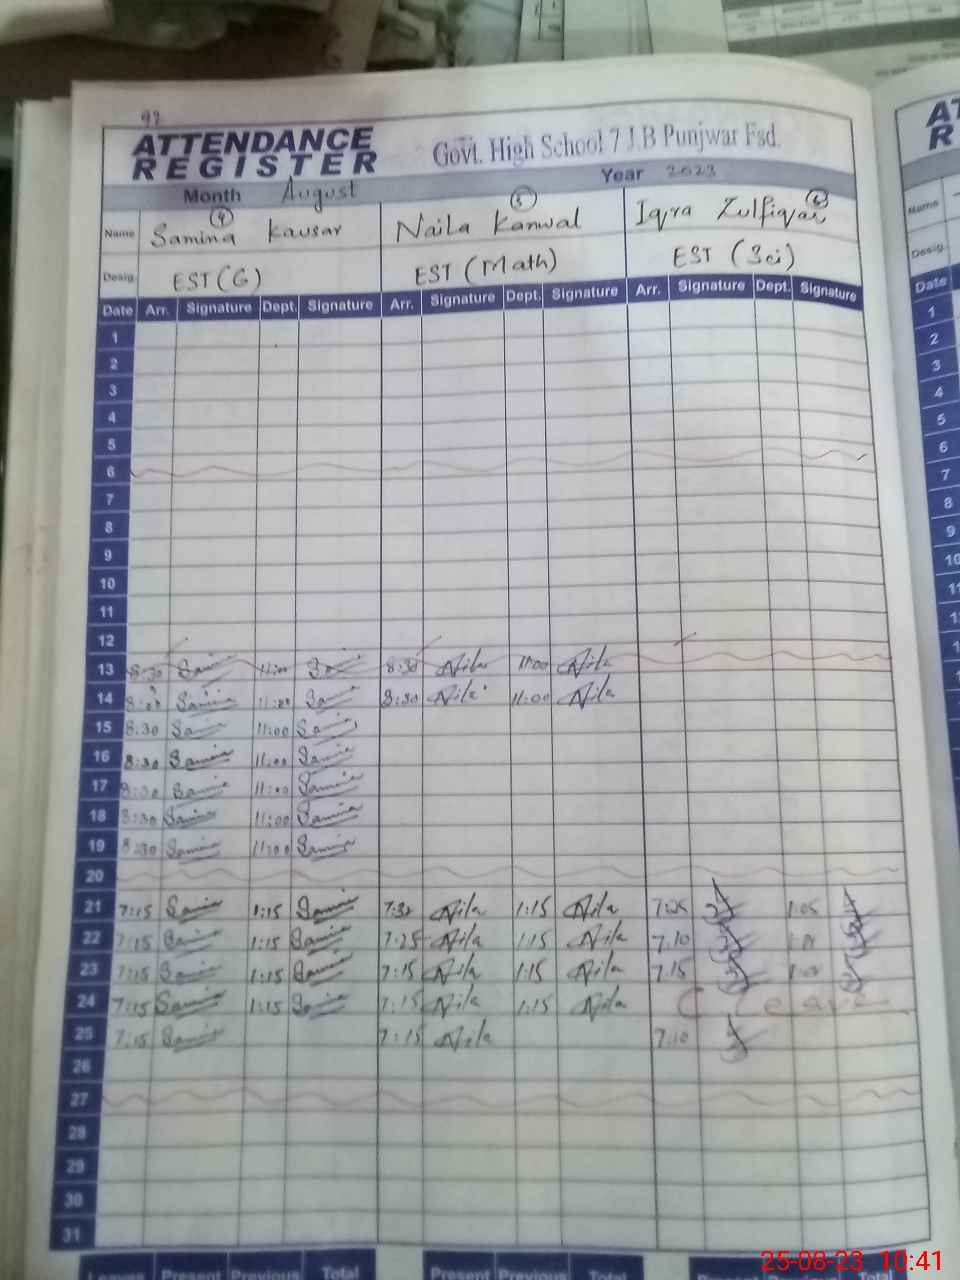 92
ATTENDANCE
REGISTER
Govt. High School 7 J.B Punjwar Fsd.
Month August Year 2023
Name Samina Kausar 4 Naila Kanwal 5 Iqra Zulfiqar 6
Desig. EST (G) EST (Math) EST (Sci)
Date Arr. Signature Dept. Signature Arr. Signature Dept. Signature Arr. Signature Dept. Signature
1
2
3
4
5
6
7
8
9
10
11
12
13 8:30 11:00 8:30 Nila 11:00 Nila
14 11:00 8:30 Nila 11:00 Nila
15 8.30 11:00
16 8:30 Samina 11.00 Samina
17 8:30 Samina 11:00 Samina
18 8:30 Samina 11:00 Samina
19 8:30 Samina 11:00 Samina
20
21 7:15 Samina 1:15 Samina Nila 1:15 Nila 1:05
22 7:15 Samina 1:15 Samina 7:25 Nila 1:15 Nila 7.10
23 7:15 Samina 1:15 Samina 7:15 Nila 1:15 Nila 7.15
24 7:15 Samina 1:15 Samina 7:15 Nila 1:15 Nila C Leave
25 7:15 Samina 7:15 Nila 7:10
26
27
28
29
30
31
Present Previous Total Present Previous Total
Name
Desig.
Date
1
2
3
4
5
6
7
8
9
10
25-08-23 10:41